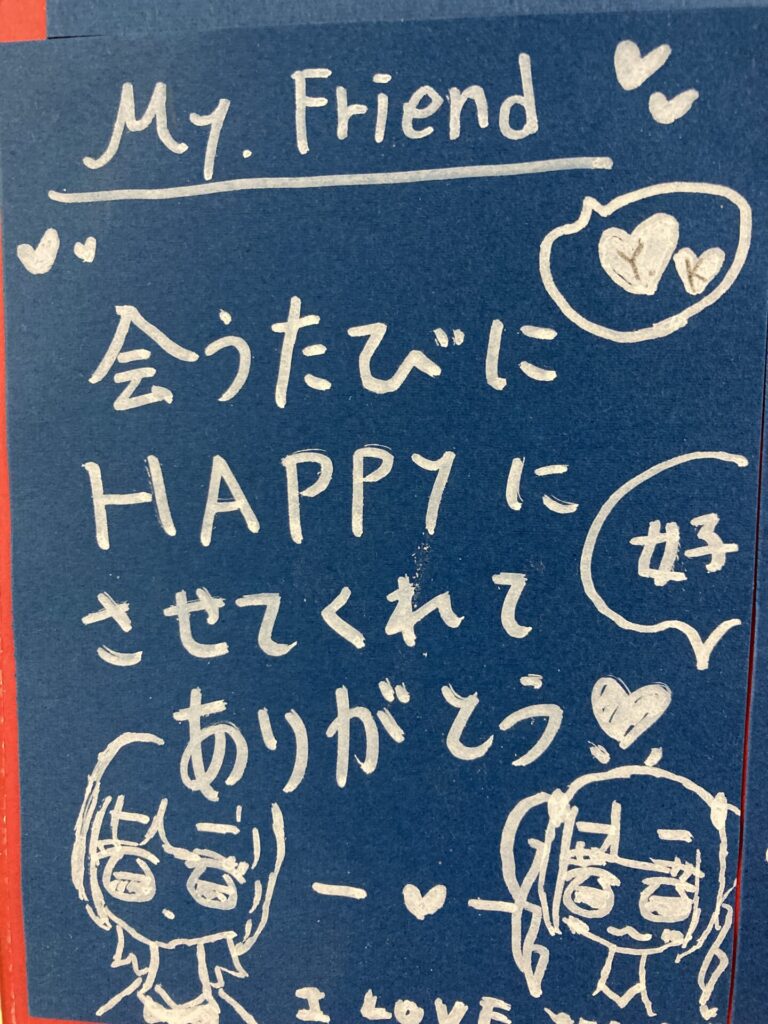 My. Friend
Y. K
会うたびに
HAPPYに
好
させてくれて
ありがとう
I LOVE